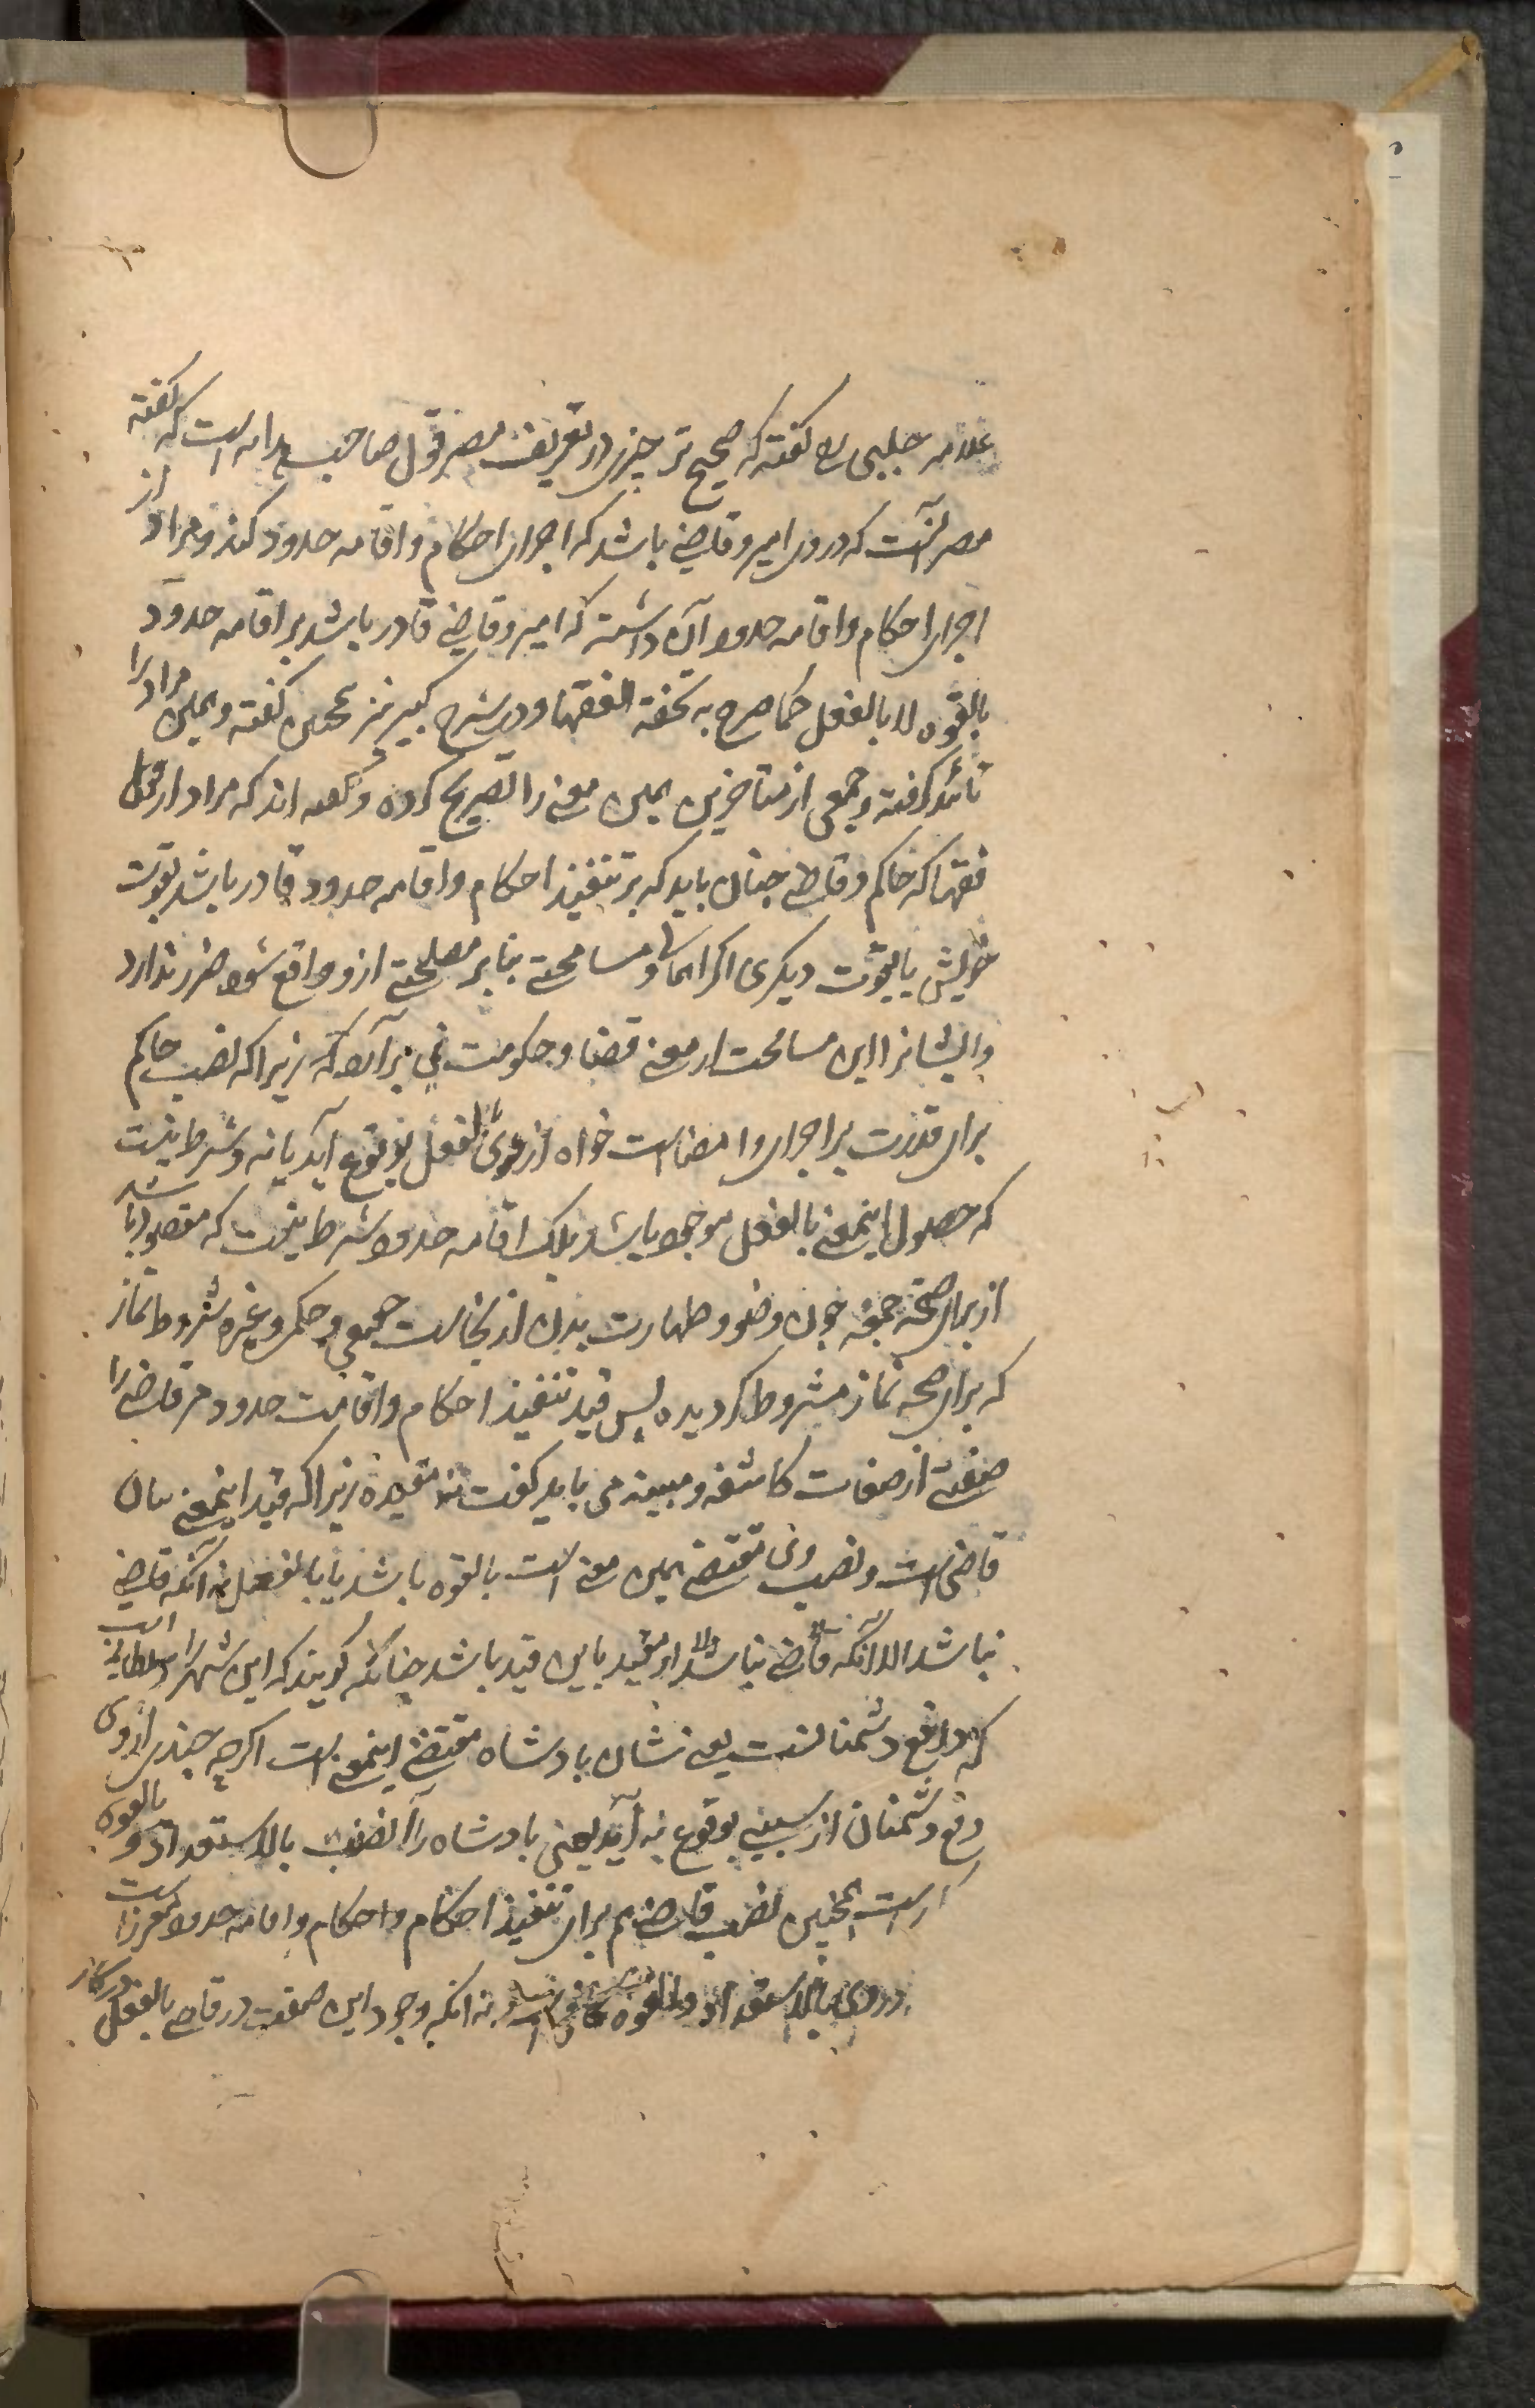 علامه حلبی رح گفته که صحیح تر چیزی در تعریف مصر قول صاحب هدایه است که گفته
مصر آنست که در وی امیر و قاضی باشد که اجرای احکام و اقامه حدود کند و مراد از
اجرای احکام و اقامه حدود آن داشته که امیر و قاضی قادر باشد بر اقامه حدود
بالقوه لا بالفعل کما صرح به تحفة الفقها و در شرح کبیر نیز همچنین گفته و همین مراد را
تائید گرفته و جمعی از متاخرین همین معنی را تصریح کرده و گفته اند که مراد از قول
فقها که حاکم و قاضی چنان باید که بر تنفیذ احکام و اقامه حدود قادر باشد بقوت
خویش یا بقوت دیگری اگر احیانا مسامحتی بنابر مصلحتی ازو واقع شود ضرر ندارد
و ایشانرا این مسامحت از معنی قضا و حکومت نمی برآرد که زیرا که نصب حاکم
برای قدرت بر اجرای و امضا است خواه از وی بالفعل بوقوع آید یا نه و شرط نیست
که حصول اینمعنی بالفعل موجود باشد بلک اقامه حدود شرط نیست که مقصود باشد
از برای صحة جمعه چون وضو و طهارت بدن از نجاست حقیقی و حکمی و غیره شروط نماز
که برای صحه نماز مشروط گردیده پس قید تنفیذ احکام و اقامت حدود مر قاضی را
صفتی از صفات کاشفه و مبینه می باید گفت نه مقیده زیرا که قید اینمعنی بیان
قاضی است و نصب وی مقتضی همین معنی است بالقوه باشد یا بالفعل نه آنکه قاضی
نباشد الا آنکه قاضی نباشد الا او مقید باین قید باشد چنانکه گویند که این شهر را سلطانی است
که دافع دشمنانست یعنی شان بادشاه مقتضی اینمعنی است اگرچه چندی از وی
دفع دشمنان از سببی بوقوع نه آید یعنی بادشاه را نصب بالاستعداد و بالقوه
است همچنین نصب قاضی هم برای تنفیذ احکام و احکام و اقامه حدود مقرر است
در وی بالاستعداد و بالقوه نه آنکه وجود این صفت در قاضی بالفعل درکار